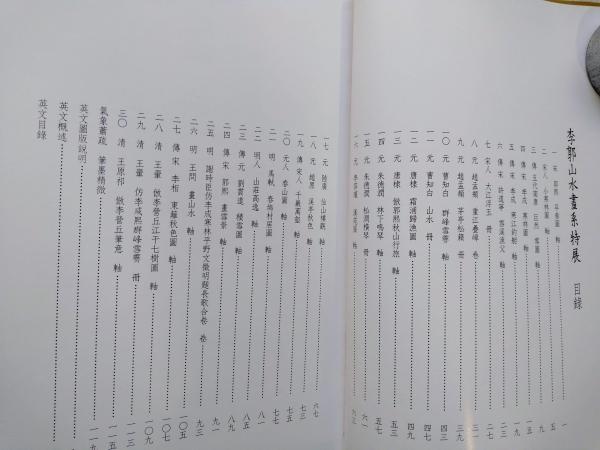 李郭山水畫系特展 目錄
一 宋 郭熙 早春圖 軸 一
二 宋人 小寒林圖 軸
三 傳五代南唐 巨然 雪圖 軸 九
四 傳宋 李成 寒林圖 軸 一五
五 傳宋 李成 寒江釣艇 軸 一九
六 傳宋 許道寧 雪溪漁父 軸 二三
七 宋人 大江浮玉 冊 二七
八 元 趙孟頫 重江疊嶂 卷 三一
九 元 趙孟頫 茅亭松籟 冊 三九
一〇 元 曹知白 群峰雪霽 軸 四三
一一 元 曹知白 山水 冊 四七
一二 元 唐棣 霜浦歸漁圖 軸 四九
一三 元 唐棣 倣郭熙秋山行旅 軸 五三
一四 元 朱德潤 林下鳴琴 軸 五七
一五 元 朱德潤 松澗橫琴 軸 六一
一六 元 李容瑾 漢苑圖 軸 六三
一七 元 陸廣 仙山樓觀 軸 六七
一八 元 趙原 溪亭秋色 軸 七一
一九 傳宋人 千巖萬壑 軸 七三
二〇 元人 春山圖 軸 七五
二一 明 馬軾 春塢村居圖 軸 七七
二二 明人 山莊高逸 軸 八一
二三 傳元 劉貫道 積雪圖 軸 八五
二四 傳宋 郭熙 畫雪景 軸 八九
二五 明 謝時臣仿李成寒林平野文徵明題長歌合卷 卷 九一
二六 明 王問 畫山水 軸 九三
二七 傳宋 李相 東籬秋色圖 軸 一〇五
二八 清 王翬 倣李營丘江干七樹圖 軸 一〇七
二九 清 王翬 仿李咸熙群峰雪霽 冊 一〇九
三〇 清 王原祁 倣李營丘筆意 軸 一一五
氣象蕭疏 筆墨精微 一一九
英文圖版說明
英文概述
英文目錄